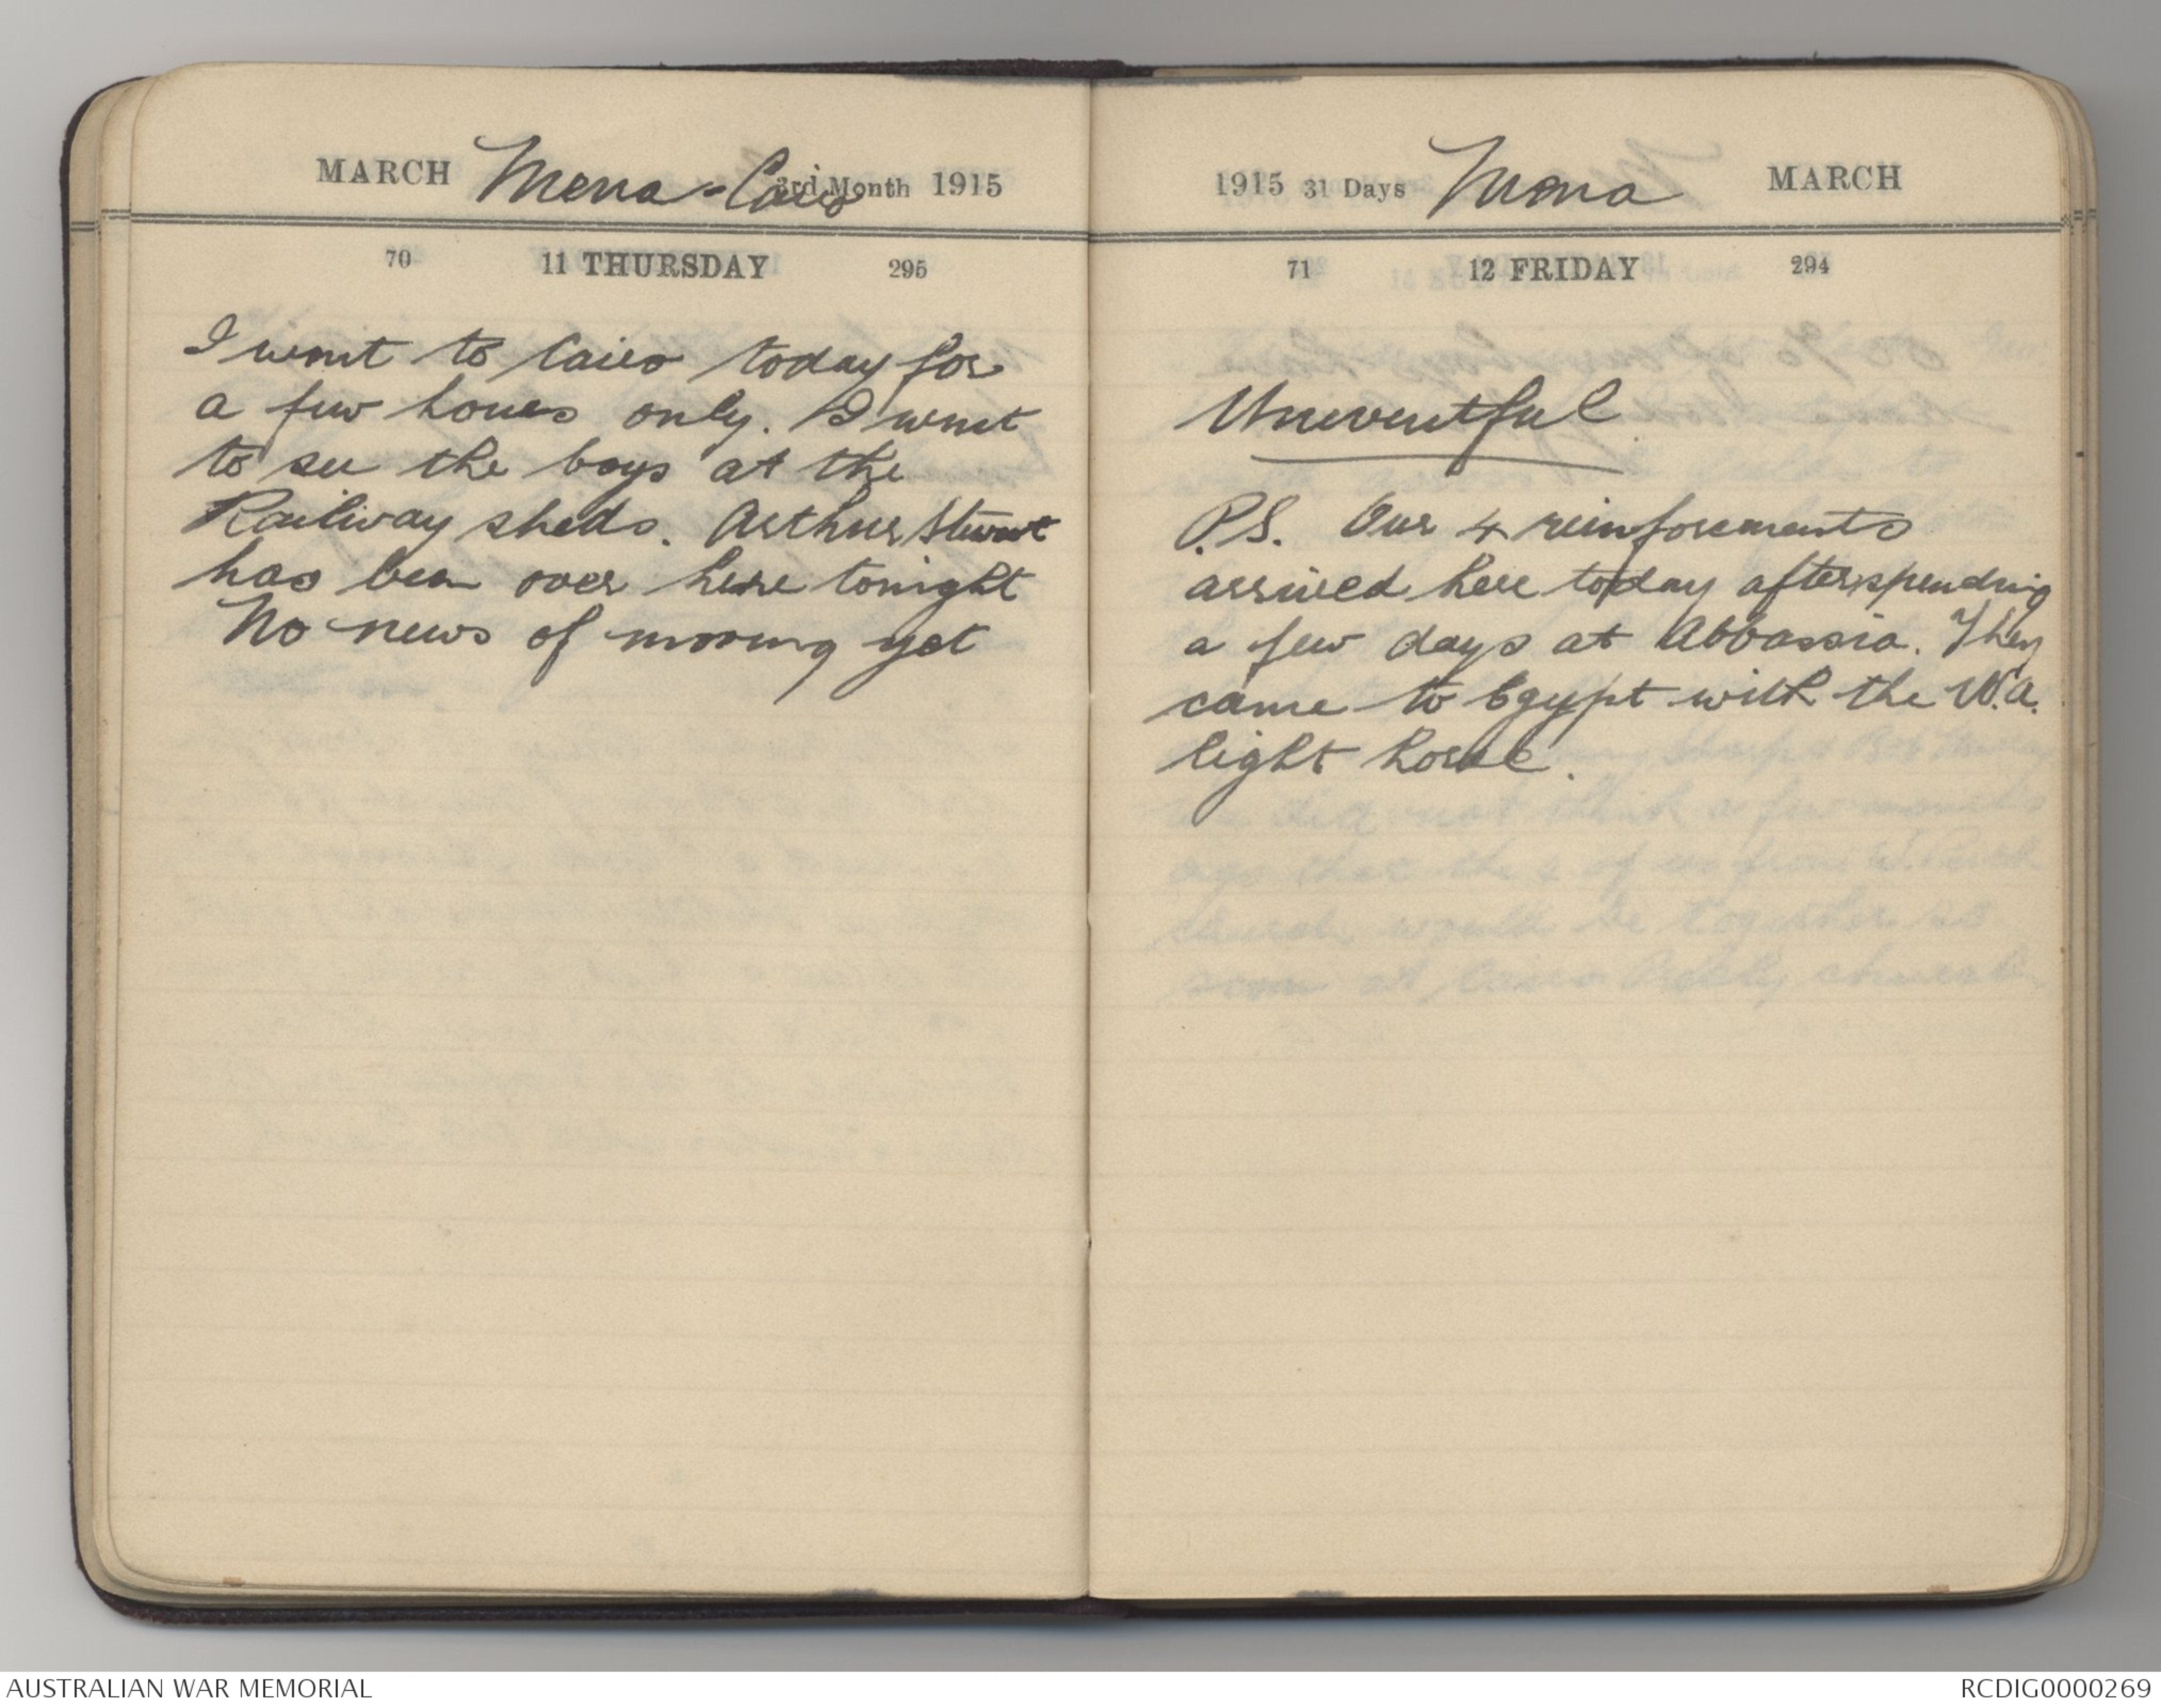 MARCH Mena-Cairo 3rd Month 1915
70 11 THURSDAY 295
I went to Cairo today for
a few hours only. I went
to see the boys at the
Railway sheds. Arthur Stewart
has been over here tonight
No news of moving yet
1915 31 Days Mena MARCH
71 12 FRIDAY 294
Uneventful
P.S. Our 4 reinforcements
arrived here today after spending
a few days at Abbassia. They
came to Egypt with the W.A.
light horse.
AUSTRALIAN WAR MEMORIAL
RCDIG0000269